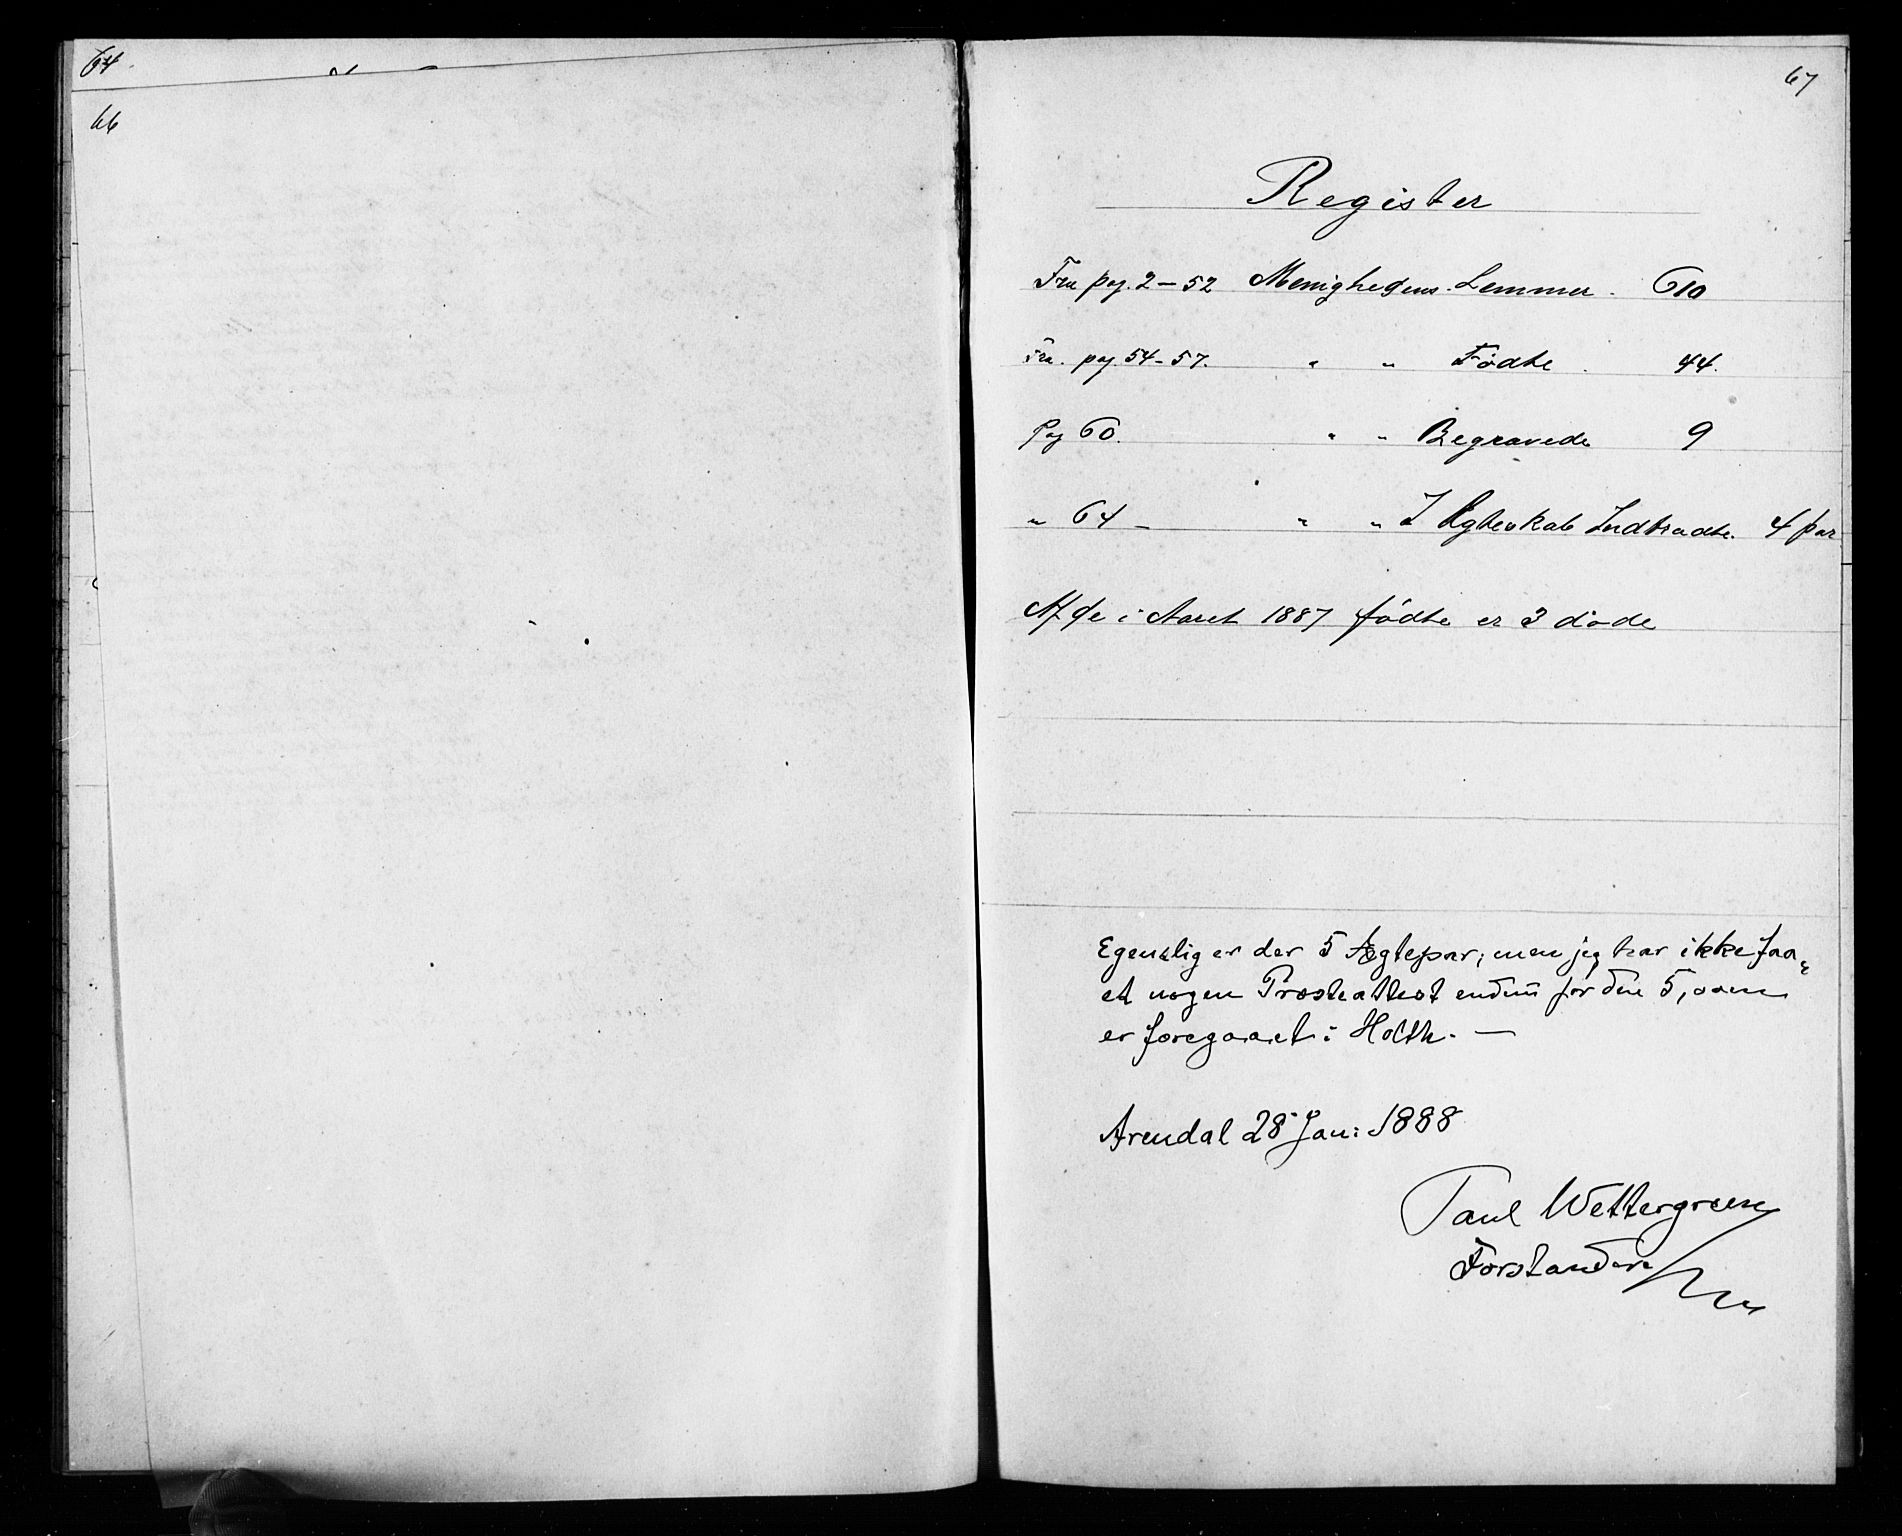 64.
66
67
Register
Fra pag. 2 – 52 Menighedens Lemmer. 610
Fra. pag. 54 – 57. " " Fødte . 44.
Pag 60. " " Begravede 9
" 64 – " " I Egteskab Indtradte. 4 par
Af de i Aaret 1887 fødte er 3 døde
Egentlig er der 5 Ægtepar; men jeg har ikke faa„
et nogen Præsteattest endnu for den 5, som
er foregaaet i Holth. —
Arendal 28 Jan: 1888
Paul Wettergreen
Forstander